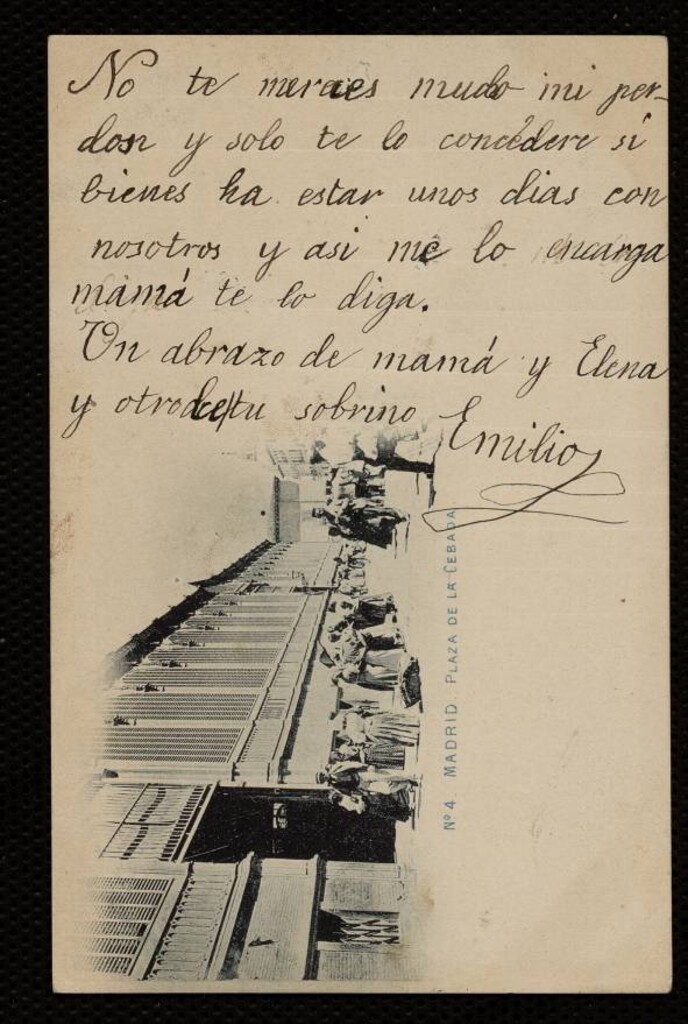 No te meraces mudo mi per-
don y solo te lo concédere si
bienes ha estar unos dias con
nosotros y asi me lo encarga
mamá te lo diga.
Un abrazo de mamá y Elena
y otro de tu sobrino Emilio
Nº 4. MADRID PLAZA DE LA CEBADA